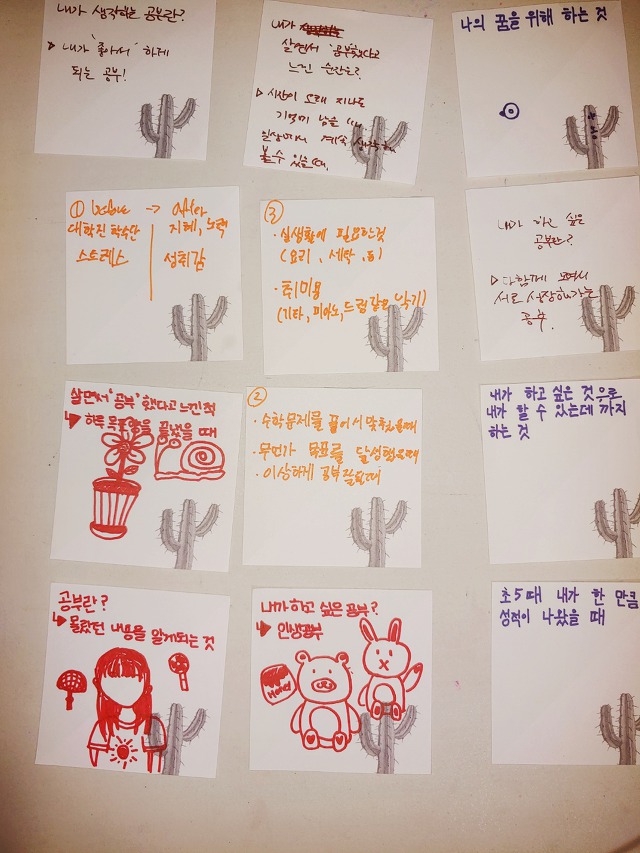 내가 생각하는 공부란?
▷ 내가 '좋아서' 하게
되는 공부!
내가
살면서 '공부'했다고
느낀 순간은?
▷ 시간이 오래 지나도
기억에 남을 때
일상에서 계속
볼 수 있을 때.
나의 꿈을 위해 하는 것
① before -> After
대학진학수단 지혜, 노력
스트레스 성취감
③
· 실생활에 필요한것
(요리, 세탁, 등)
· 취미용
(기타, 피아노, 드럼같은 악기)
내가 하고 싶은
공부란?
▷ 다함께 모여서
서로 성장해가는
공부.
살면서 '공부' 했다고 느낀적
↳ 하루 목표량을 끝냈을 때
②
· 수학문제를 풀어서 맞췄을때
· 무언가 목표를 달성했을때
· 이상하게 공부 잘될때
내가 하고 싶은 것으로
내가 할 수 있는데 까지
하는 것
공부란?
↳ 몰랐던 내용을 알게되는 것
내가하고 싶은 공부?
↳ 인생공부
Honey
초5때 내가 한 만큼
성적이 나왔을 때